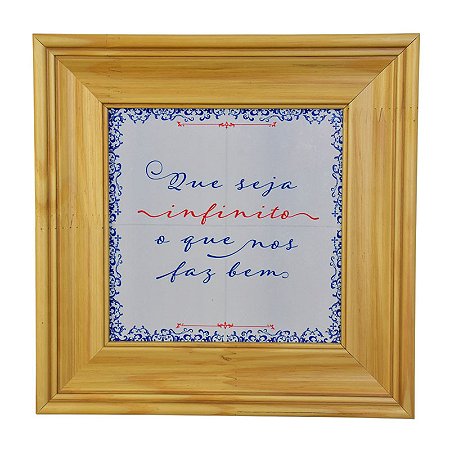 Que seja
infinito
o que nos
faz bem